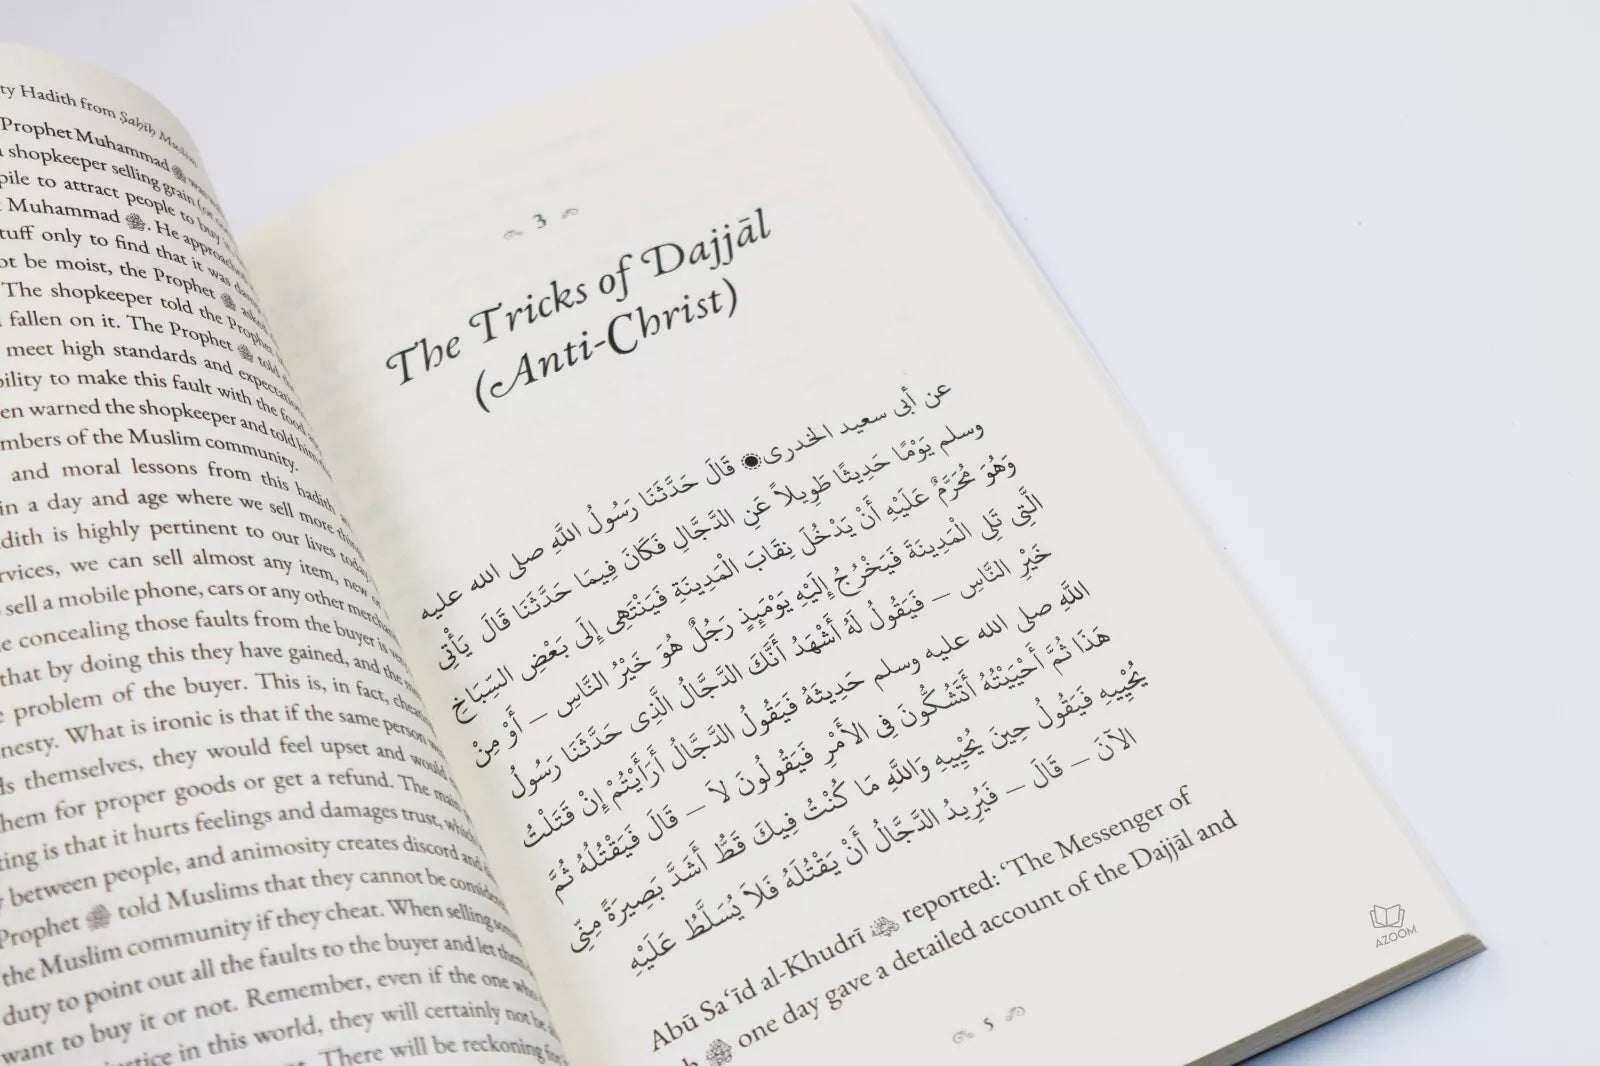 ty Hadith from Ṣaḥīḥ Muslim
Prophet Muhammad ﷺ
shopkeeper selling grain (or
pile to attract people to buy
Muhammad ﷺ. He approached
tuff only to find that it was
ot be moist, the Prophet ﷺ
The shopkeeper told the Prophet,
fallen on it. The Prophet ﷺ told
meet high standards and expectations
bility to make this fault with the food
en warned the shopkeeper and told him
mbers of the Muslim community.
and moral lessons from this hadith
in a day and age where we sell more
adith is highly pertinent to our lives today.
rvices, we can sell almost any item, new or
sell a mobile phone, cars or any other
e concealing those faults from the buyer is
that by doing this they have gained, and the
e problem of the buyer. This is, in fact,
nesty. What is ironic is that if the same person
ds themselves, they would feel upset and would
hem for proper goods or get a refund. The main
ting is that it hurts feelings and damages trust, which
y between people, and animosity creates discord and
Prophet ﷺ told Muslims that they cannot be
the Muslim community if they cheat. When selling
duty to point out all the faults to the buyer and let them
want to buy it or not. Remember, even if the one
justice in this world, they will certainly not be
There will be reckoning for
3
The Tricks of Dajjāl
(Anti-Christ)
عن أبى سعيد الخدرى قَالَ حَدَّثَنَا رَسُولُ اللَّهِ صلى الله عليه
وسلم يَوْمًا حَدِيثًا طَوِيلاً عَنِ الدَّجَّالِ فَكَانَ فِيمَا حَدَّثَنَا قَالَ يَأْتِي
وَهُوَ مُحَرَّمٌ عَلَيْهِ أَنْ يَدْخُلَ نِقَابَ الْمَدِينَةِ فَيَنْتَهِي إِلَى بَعْضِ السِّبَاخِ
الَّتِي تَلِي الْمَدِينَةَ فَيَخْرُجُ إِلَيْهِ يَوْمَئِذٍ رَجُلٌ هُوَ خَيْرُ النَّاسِ – أَوْ مِنْ
خَيْرِ النَّاسِ – فَيَقُولُ لَهُ أَشْهَدُ أَنَّكَ الدَّجَّالُ الَّذِى حَدَّثَنَا رَسُولُ
اللَّهِ صلى الله عليه وسلم حَدِيثَهُ فَيَقُولُ الدَّجَّالُ أَرَأَيْتُمْ إِنْ قَتَلْتُ
هَذَا ثُمَّ أَحْيَيْتُهُ أَتَشُكُّونَ فِي الأَمْرِ فَيَقُولُونَ لاَ – قَالَ فَيَقْتُلُهُ ثُمَّ
يُحْيِيهِ فَيَقُولُ حِينَ يُحْيِيهِ وَاللَّهِ مَا كُنْتُ فِيكَ قَطُّ أَشَدَّ بَصِيرَةً مِنِّي
الآنَ – قَالَ – فَيُرِيدُ الدَّجَّالُ أَنْ يَقْتُلَهُ فَلاَ يُسَلَّطُ عَلَيْهِ
Abū Saʿīd al-Khudrī reported: ‘The Messenger of
h ﷺ one day gave a detailed account of the Dajjāl and
5
AZOOM